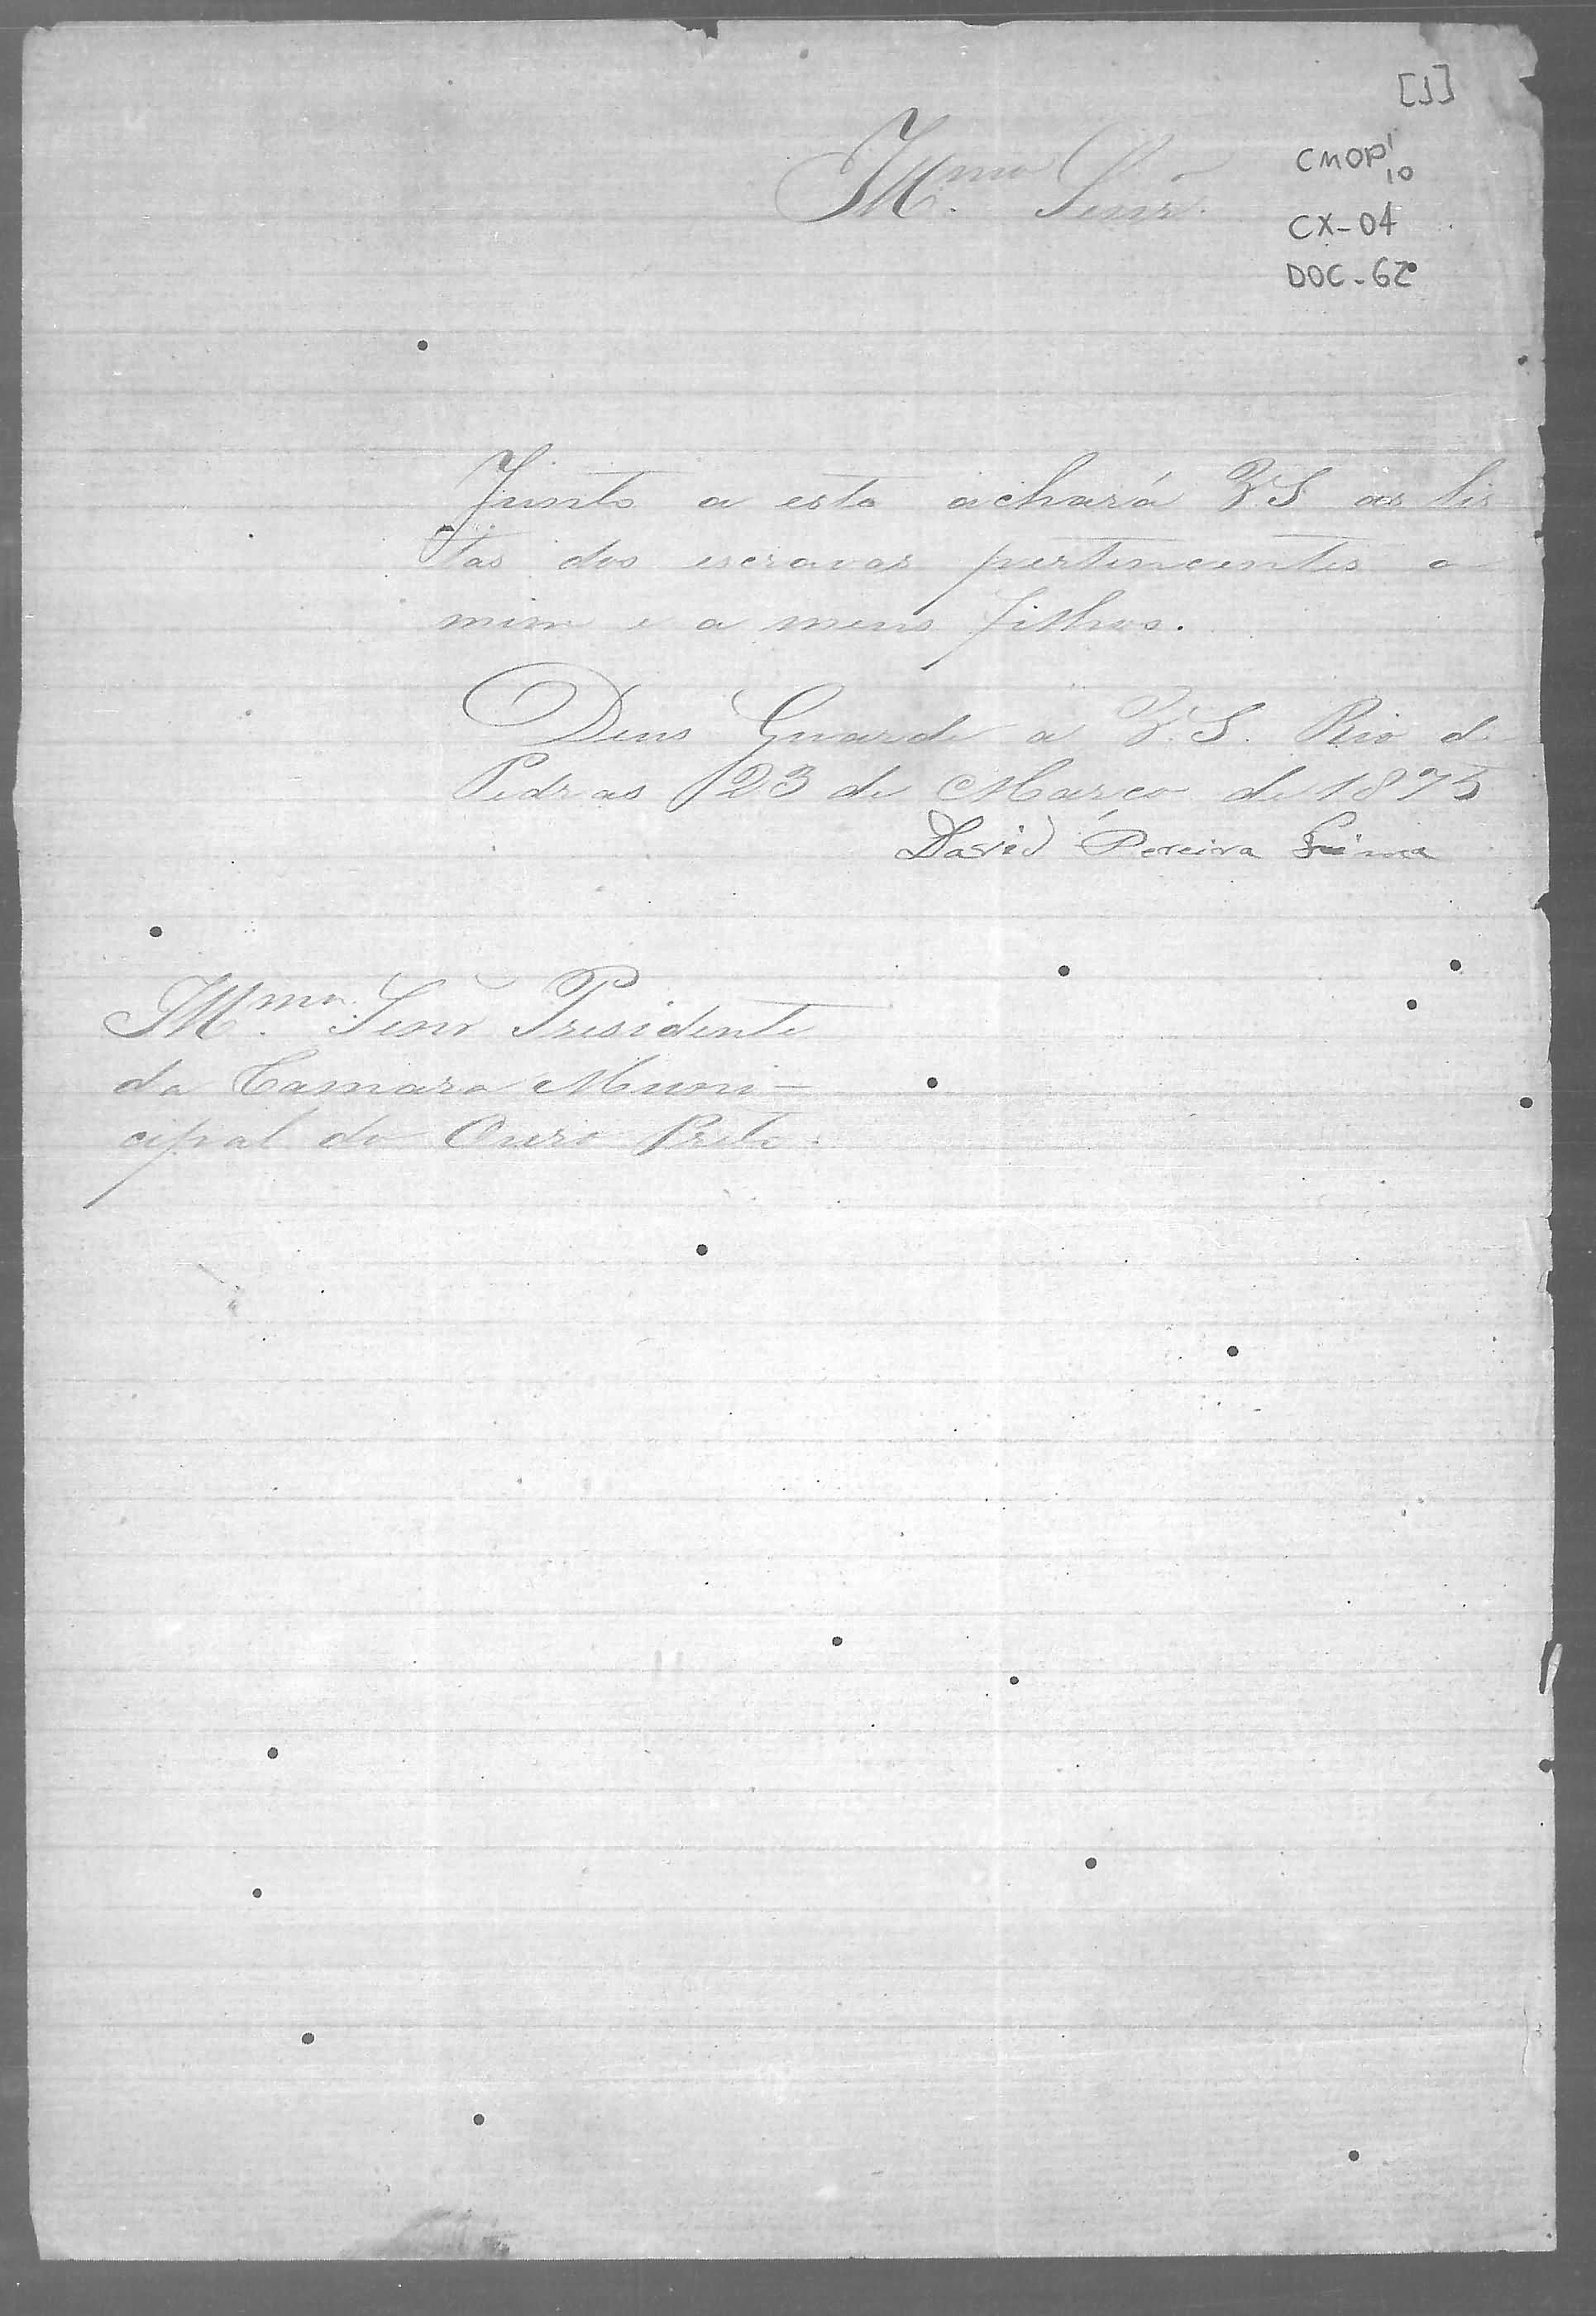 [1]
CMOP 1/10
CX-04
DOC-62
Illmo. Senr.
Junto a esta achará V S as lis
tas dos escravos pertencentes a
mim e a meus filhos.
Deus Guarde a V. S. Rio de
Pedras 23 de Março de 1875
David Pereira Lima
Illmo. Senr Presidente
da Camara Muni-
cipal do Ouro Preto.